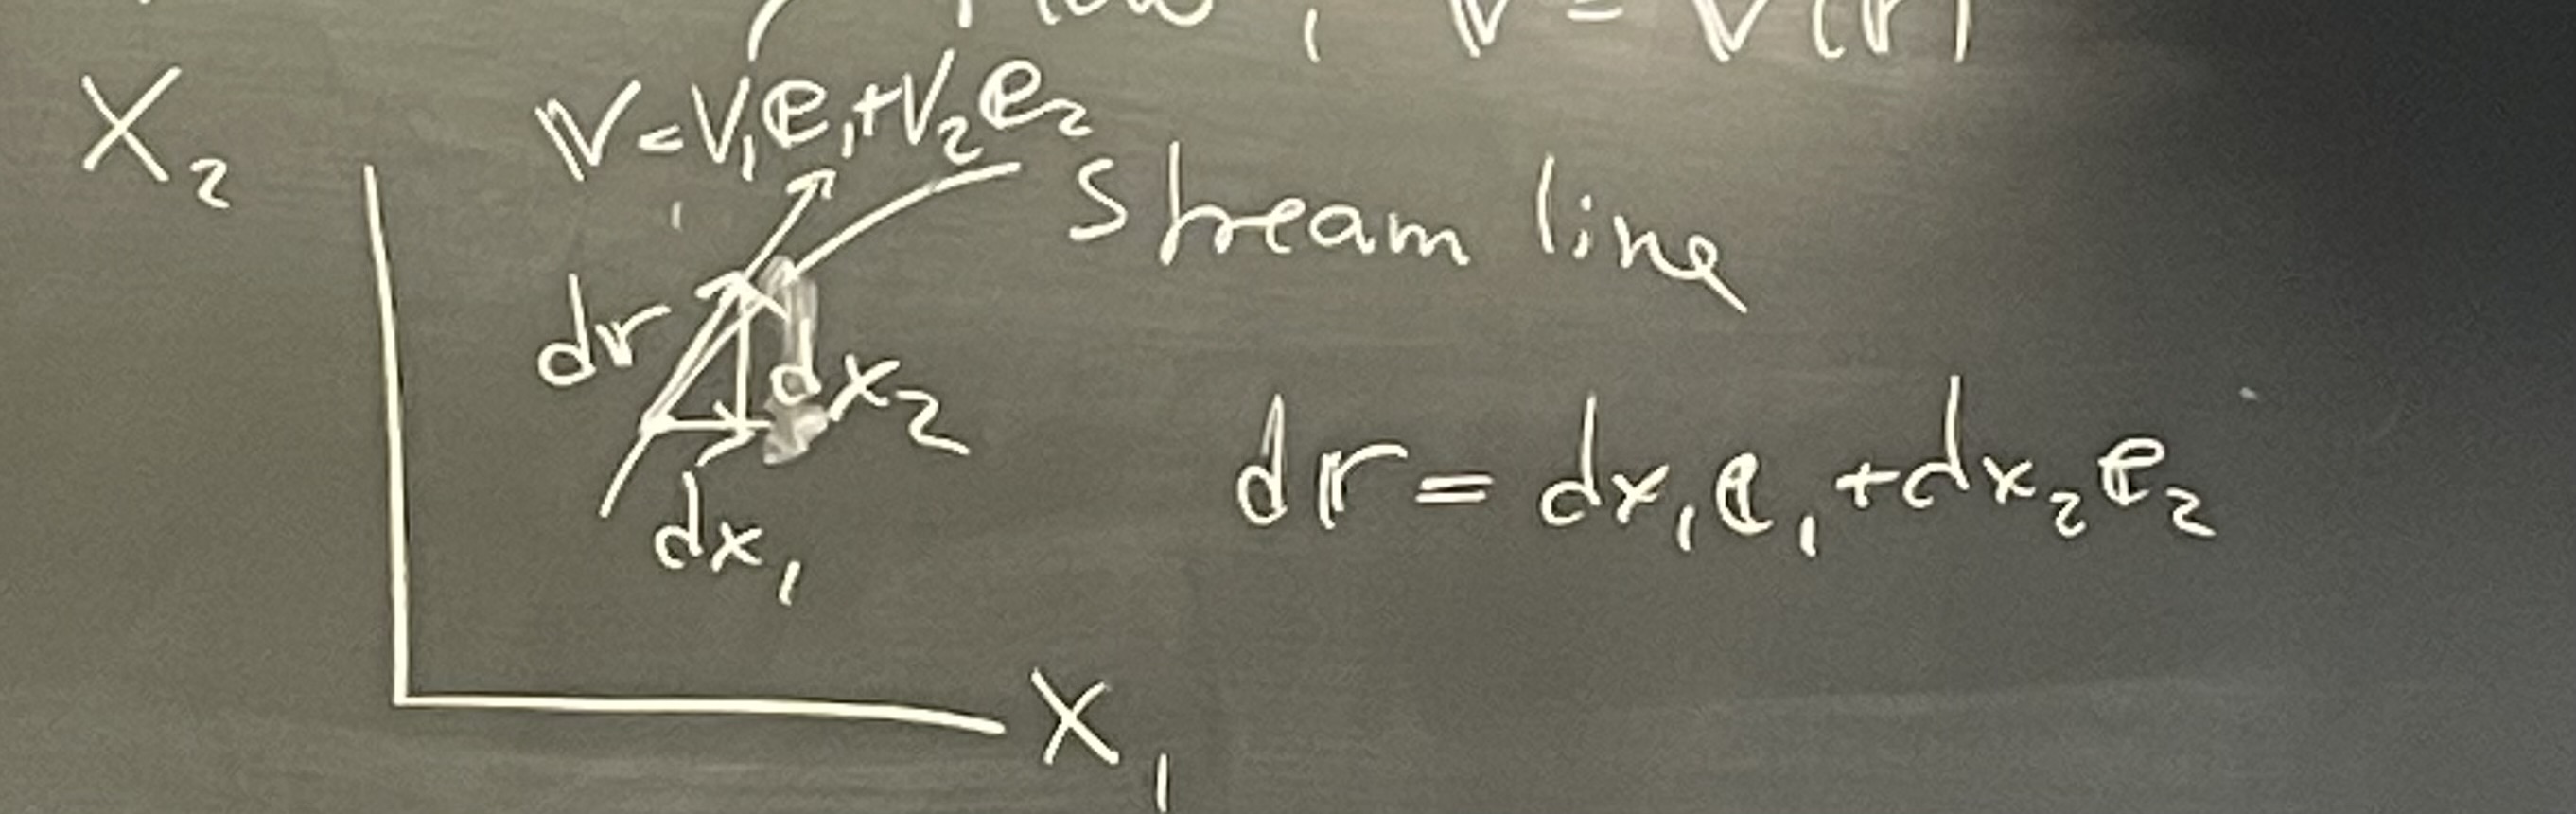 Flow, 𝕍 = 𝕍(𝕣)
X₂
𝕍 = V₁𝕖₁ + V₂𝕖₂
Stream line
d𝕣
dx₂
d𝕣 = dx₁𝕖₁ + dx₂𝕖₂
dx₁
X₁